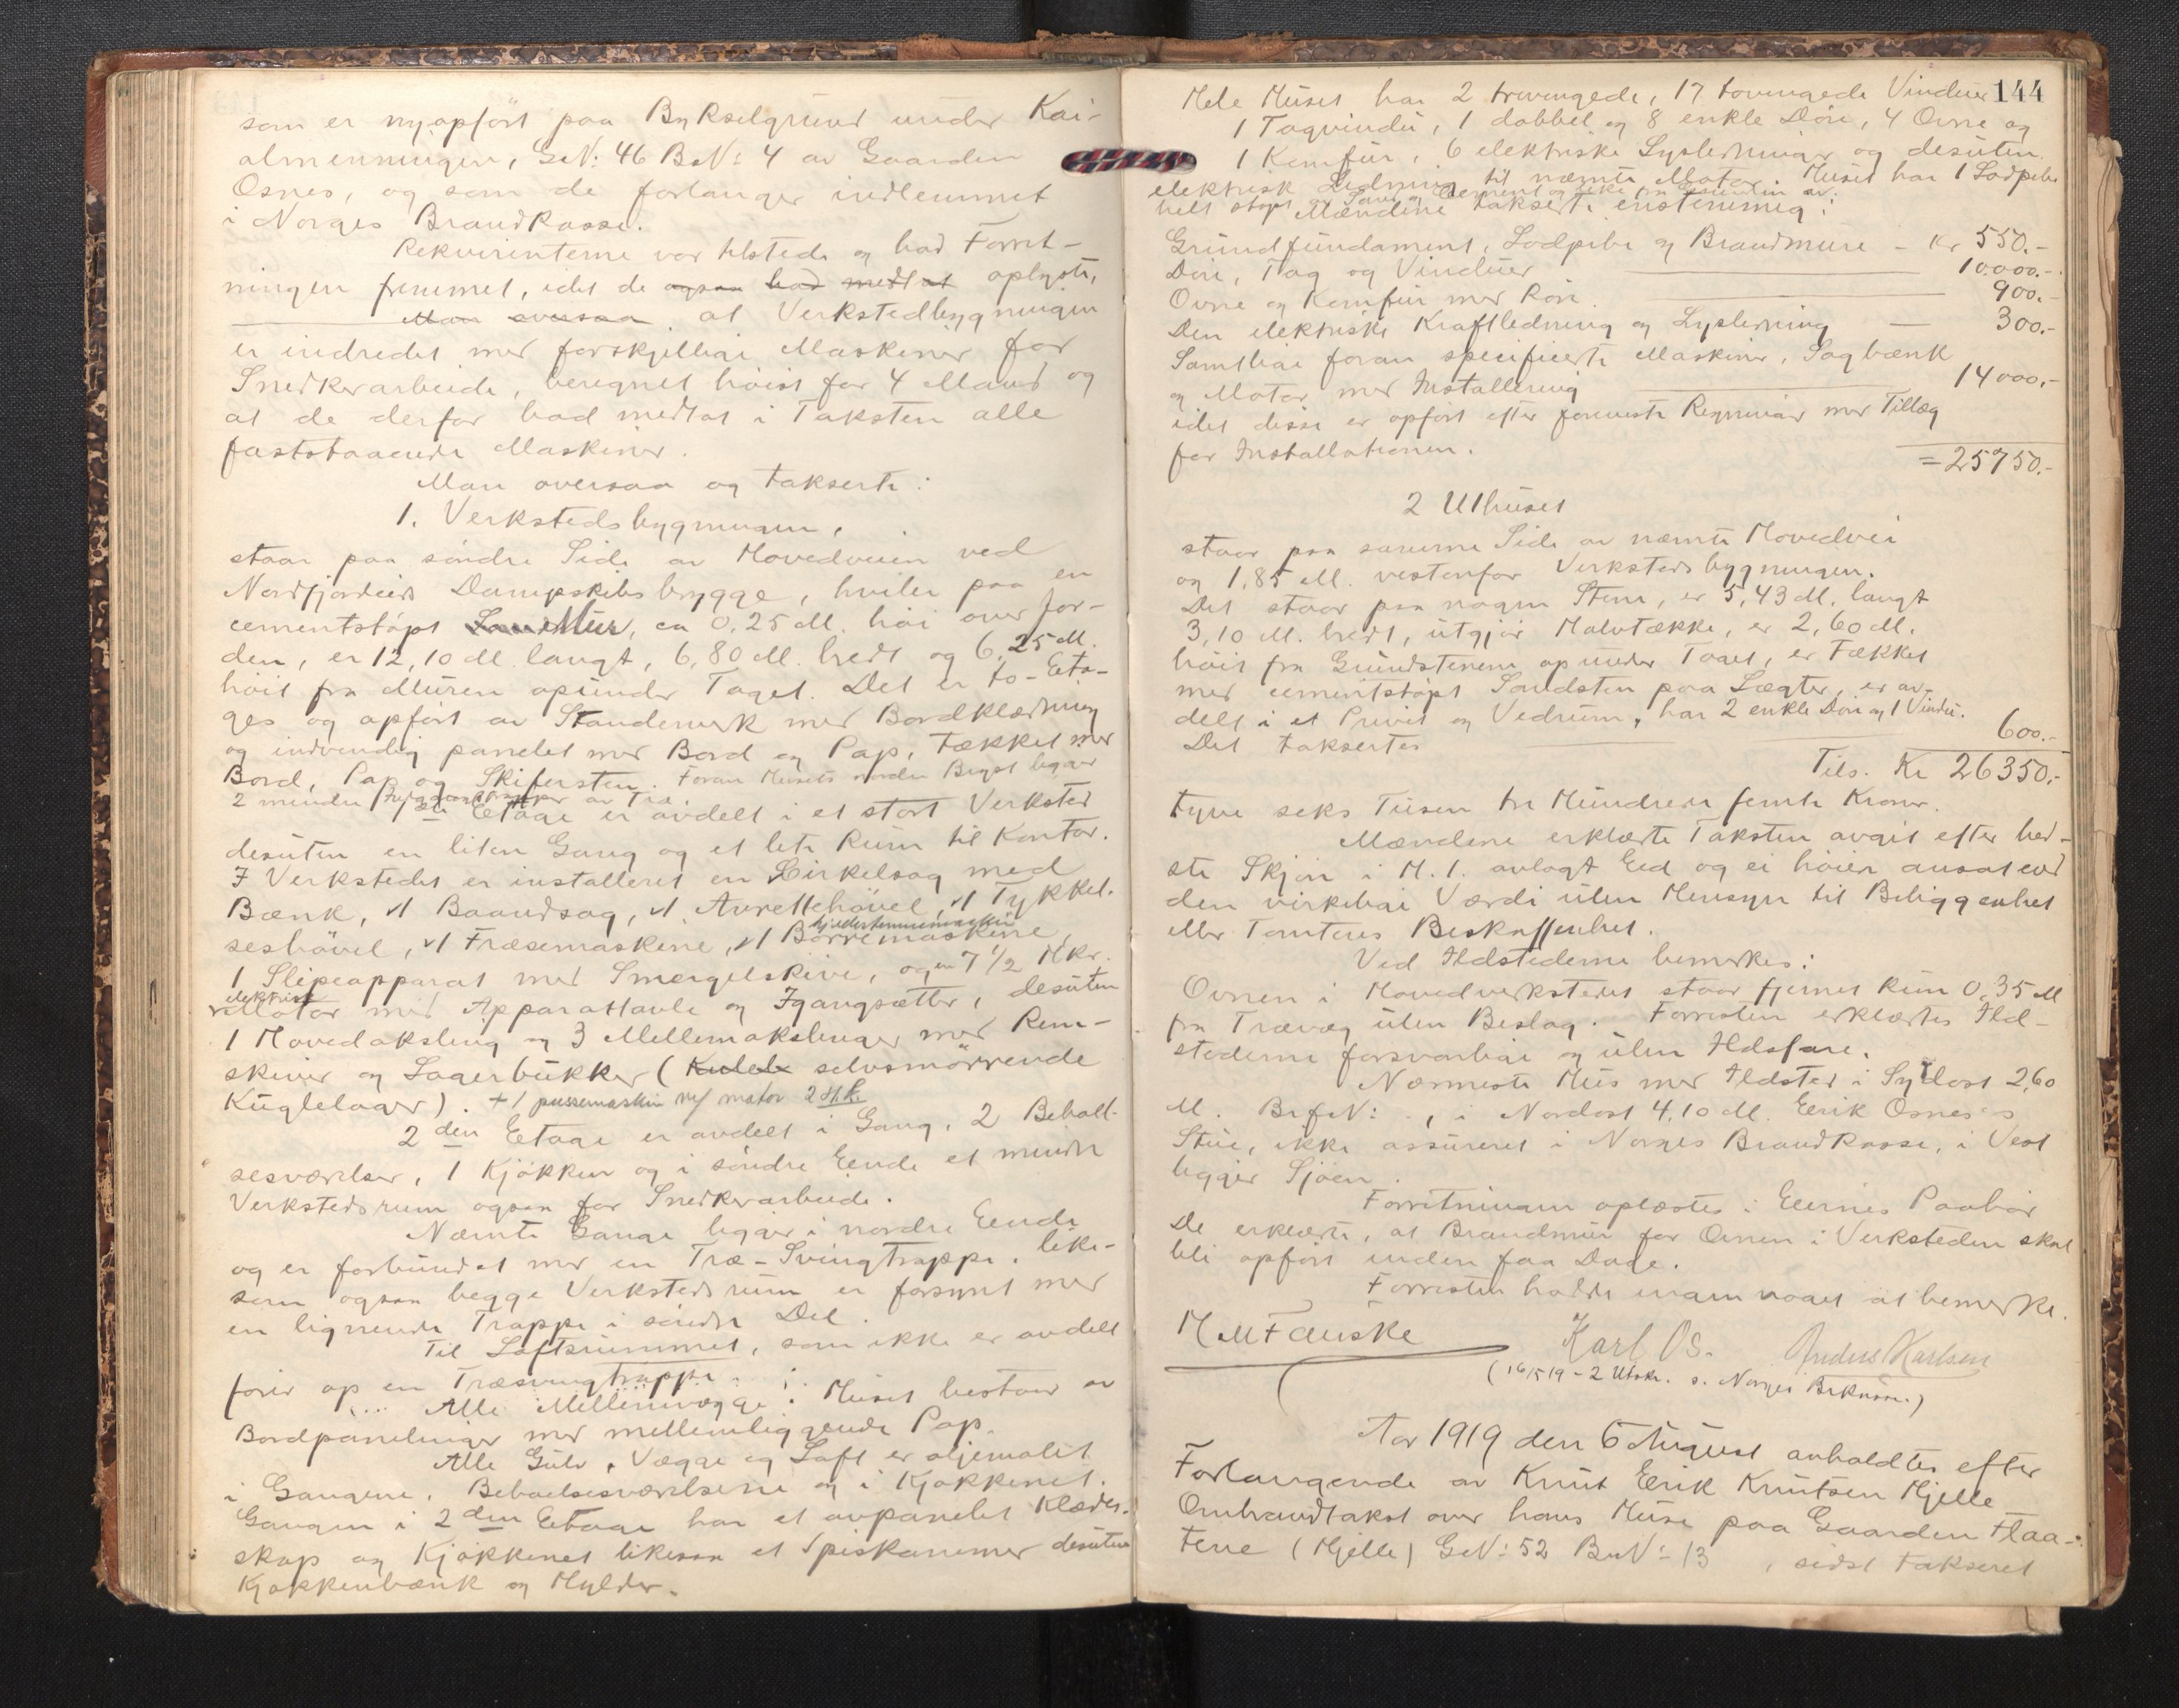 som er nyopført paa Bykselgrund under Kai-
almenningen, G.N: 46 B.N: 4 av Gaarden
Osnes, og som de forlanger indlemmet
i Norges Brandkasse.
Rekvirenterne var tilstede og bad Forret-
ningen fremmet, idet de ogsaa bad medtat oplyste,
Man oversaa at Verkstedbygningen
er indredet med forskjellige Maskiner for
Snedkerarbeide, beregnet høist for 4 Mand og
at de derfor bad medtat i Taksten alle
faststaaende Maskiner.
Man oversaa og takserte:
1. Verkstedsbygningen,
staar paa søndre Side av Hovedveien ved
Nordfjordeids Dampskibsbrygge, hviler paa en
cementstøpt Mur, ca 0,25 M. høi over Jor-
den, er 12,10 M. langt, 6,80 M. bredt og 6,25 M.
høit fra Muren opunder Taget. Det er to-Eta-
ges og opført av Standerverk med Bordklædning
og indvendig panelet med Bord og Pap, tækket med
Bord, Pap og Skifersten. Foran Husets nordre Bryst ligger
2 mindre av Træ.
Etage er avdelt i et stort Verksted
desuten en liten Gang og et lite Rum til Kontor.
I Verkstedet er installeret en Cirkelsag med
Bænk, 1 Baandsag, 1 Avrettehøvel, 1 Tykkel-
seshøvel, 1 Fræsemaskine, 1 Borremaskine,
1 Slipeapparat med Smergelskive, og en 7 1/2 Hkr.
elektrisk
Motor med Apparattavle og Igangsætter, desuten
1 Hovedaksling og 3 Mellemakslinger med Rem-
skiver og Lagerbukker (Kulele selvsmørrende
Kuglelager). + 1 pussemaskin m/ motor 2 Hk
2den Etage er avdelt i Gang, 2 Beboel-
sesværelser, 1 Kjøkken og i søndre Eende et mindre
Verkstedsrum ogsaa for Snedkerarbeide.
Nævnte Gange ligger i nordre Eende
og er forbundet med en Træ-Svingtrappe, like-
som ogsaa begge Verkstedsrum er forsynt med
en lignende Trappe i søndre Del.
Til Loftsrummet, som ikke er avdelt
fører op en Træsvingtrappe.
Alle Mellemvægge i Huset bestaar av
Bordpanelinger med mellemliggende Pap.
Alle Gulv, Vægge og Loft er oljemalet
i Gangene, Beboelsesværelserne og i Kjøkkenet.
Gangen i 2den Etage har et avpanelet Klædes-
skap og Kjøkkenet likesaa et Spiskammer desuten
Kjøkkenbænk og Hylder.
144
Hele Huset har 2 trevingede, 17 tovingede Vinduer
1 Tagvindu, 1 dobbel og 8 enkle Døre, 4 Ovne og
1 Komfur, 6 elektriske Lysledninger og desuten
elektrisk Ledning til nævnte Motor. Huset har 1 Lodpibe
helt støpt av Sand og Cement og
Mændene takserte enstemmig:
Grundfundament, Lodpibe og Brandmure – Kr 550.-
Døre, Tag og Vinduer 10000.-
Ovne og Komfur med Rør 900.-
Den elektriske Kraftledning og Lysledning – 300.-
Samtlige foran specificerte Maskiner, Sagbænk
og Motor med Installering 14000.-
idet disse er opført efter foreviste Regninger med Tillæg
for Installationen.
= 25750.-
2 Uthuset
staar paa samme Side av nævnte Hovedvei
og 1,85 M. vestenfor Verkstedsbygningen.
Det staar paa nogen Stene, er 5,43 M. langt
3,10 M. bredt, utgjør Halvtække, er 2,60 M.
høit fra Grundstenene op under Taget, er tækket
med cementstøpt Sandsten paa Lægter, er av-
delt i et Privet og Vedrum, har 2 enkle Døre og 1 Vindu.
Det taksertes 600.-
Tils. Kr 26350.-
tyve seks Tusen tre Hundrede femti Kroner.
Mændene erklærte Taksten avgit efter bed-
ste Skjøn i H. t. avlagt Eed og ei høiere ansat end
den virkelige Værdi uten Hensyn til Beliggenhet
eller Tomtens Beskaffenhet.
Ved Ildstederne bemerkes:
Ovnen i Hovedverkstedet staar fjernet kun 0,35 M
fra Trævæg uten Beslag. Forresten erklærtes Ild-
stederne forsvarlige og uten Ildsfare.
Nærmeste Hus med Ildsted i Sydost 2,60
M. Br.f.N: , i Nordost 4,10 M. Eerik Osnes's
Stue, ikke assureret i Norges Brandkasse, i Vest
ligger Sjøen.
Forretningen oplæstes i Eiernes Paahør
De erklærte, at Brandmur for Ovnen i Verksteden skal
bli opført inden faa Dage.
Forresten hadde ingen noget at bemerke.
H M Fauske Karl Os. Anders Karlsen
(16/5 19 – 2 Utskr. s. Norges Brkasse.)
Aar 1919 den 6 August avholdtes efter
Forlangende av Knut Eerik Knutsen Hjelle
Ombrandtakst over hans Huse paa Gaarden Flaa-
tene (Hjelle) G.N: 52 B.N: 13 , sidst takseret